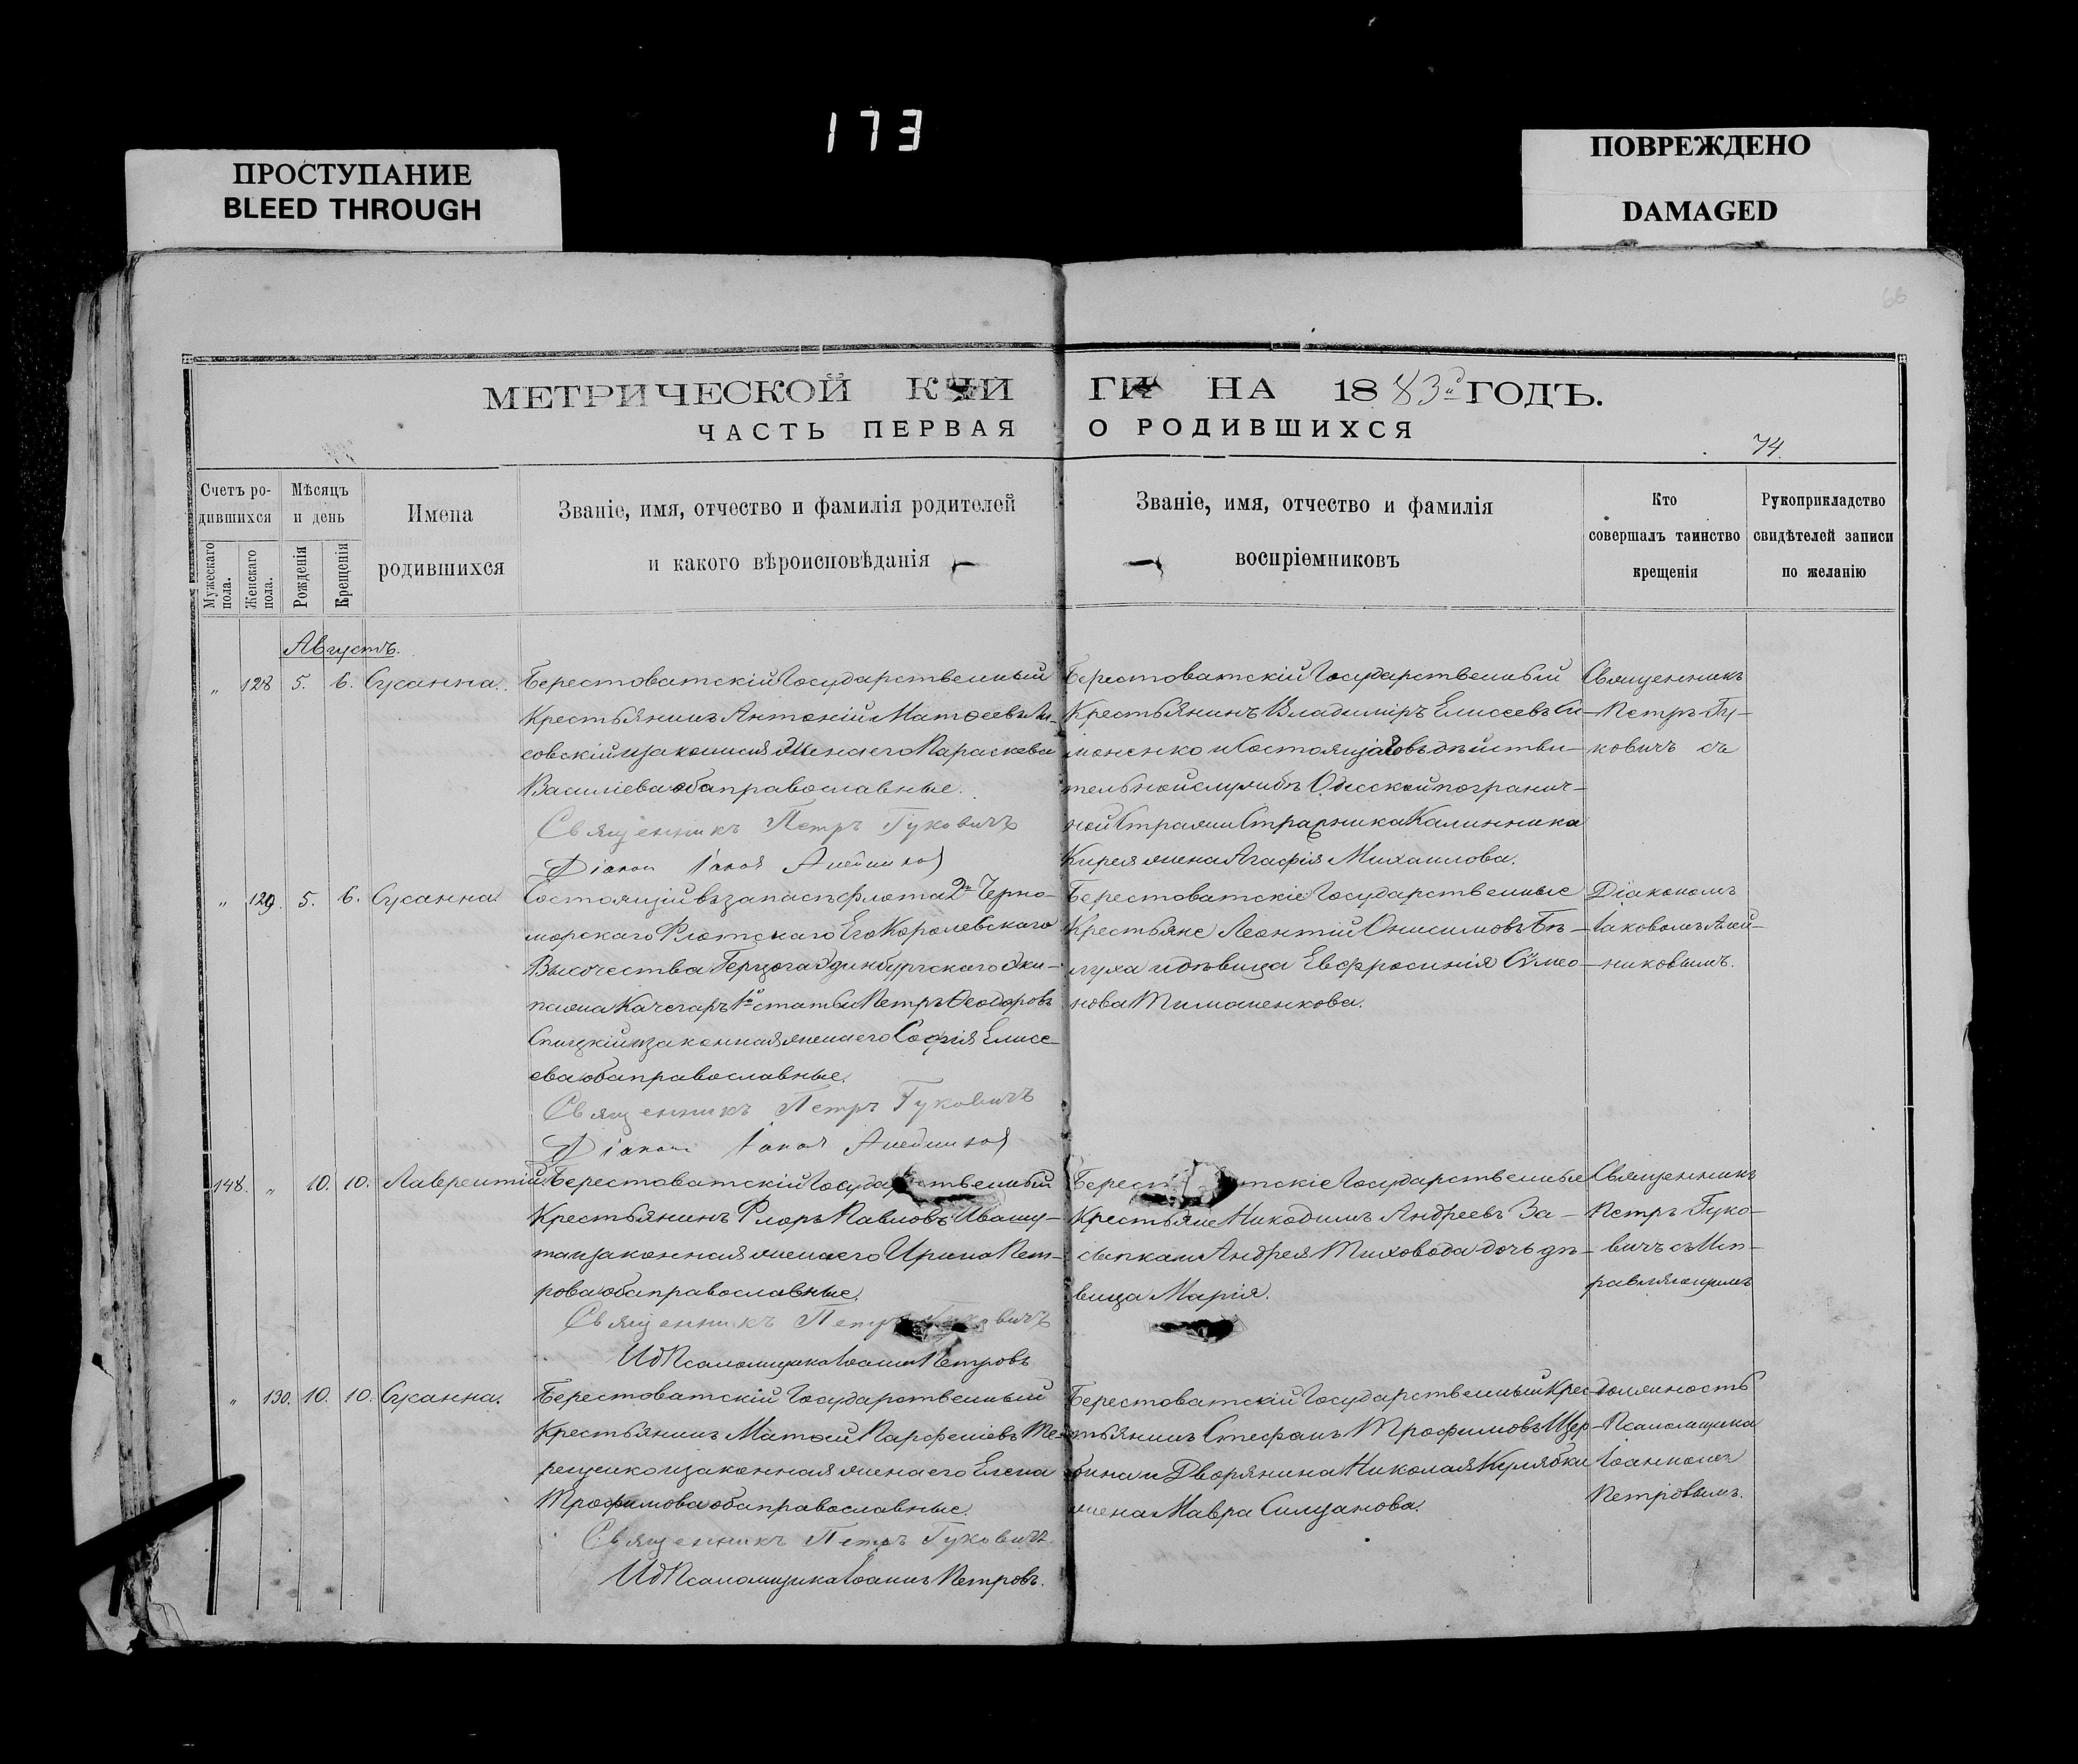 173
ПРОСТУПАНИЕ
BLEED THROUGH
ПОВРЕЖДЕНО
DAMAGED
МЕТРИЧЕСКОЙ КНИГИ НА 1883й ГОДЪ.
ЧАСТЬ ПЕРВАЯ О РОДИВШИХСЯ
74.
Счетъ ро-
дившихся
Мужескаго пола.
Женскаго пола.
Мѣсяцъ
и день
Рожденія
Крещенія
Имена
родившихся
Званіе, имя, отчество и фамилія родителей
и какого вѣроисповѣданія
Званіе, имя, отчество и фамилія
воспріемниковъ
Кто
совершалъ таинство
крещенія
Рукоприкладство
свидѣтелей записи
по желанію
Августъ.
„ 128 5. 6. Сусанна.
Берестоватскій Государственный
Крестьянинъ Антоній Матѳеевъ Ли-
совскій и законная жена его Параскева
Василіева оба православные.
Священникъ Петръ Гуковичъ
Діаконъ Іаковъ
Берестоватскій Государственный
Крестьянинъ Владиміръ Елисеевъ Си-
моненко и Состоящаго въ дѣйстви-
тельной службѣ Одесской погранич-
ной Стражи Стражника Калинника
Кирея жена Агафія Михаилова.
Священникъ
Петръ Гу-
ковичъ съ
„ 129. 5. 6. Сусанна
Состоящій въ запасѣ флота 2го Черно-
морскаго Флотскаго Его Королевскаго
Высочества Герцога Эдинбургскаго Эки-
пажа Кочегаръ 1й статьи Петръ Ѳеодоровъ
и законная жена его Софія Елисе-
ева оба православные.
Священникъ Петръ Гуковичъ
Діаконъ Іаковъ
Берестоватскіе Государственные
Крестьяне Леонтій Онисимовъ Бѣ-
луха и дѣвица Евфросинія Симео-
нова Тимошенкова.
Діакономъ
Іаковомъ Алей-
никовымъ.
148. „ 10. 10. Лаврентій
Берестоватскій Государственный
Крестьянинъ Флоръ Павловъ Ивашу-
та и законная жена его Ирина Пет-
рова оба православные.
Священникъ Петръ Гуковичъ
ИдПсаломщика Іоаннъ Петровъ
Берестоватскіе Государственные
Крестьяне Никодимъ Андреевъ За-
сыпка и Андрея Тиховода дочь дѣ-
вица Марія.
Священникъ
Петръ Гуко-
вичъ съ Исп-
равляющимъ
„ 130. 10. 10. Сусанна.
Берестоватскій Государственный
Крестьянинъ Матѳей Парфеніевъ Те-
рещенко и законная жена его Елена
Трофимова оба православные.
Священникъ Петръ Гуковичъ.
ИдПсаломщика Іоаннъ Петровъ.
Берестоватскій Государственный Крес-
тьянинъ Стефанъ Трофимовъ Щер-
бина и Дворянина Николая Кулябки
жена Мавра
должность
Псаломщика
Іоанномъ
Петровымъ.